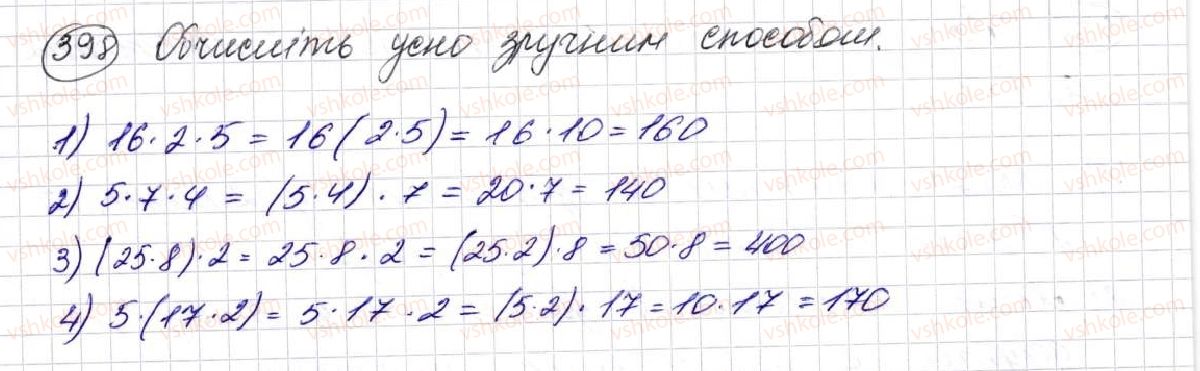 398 Обчисліть усно зручним способом.
1) 16·2·5 = 16(2·5) = 16·10 = 160
2) 5·7·4 = (5·4)·7 = 20·7 = 140
3) (25·8)·2 = 25·8·2 = (25·2)·8 = 50·8 = 400
4) 5·(17·2) = 5·17·2 = (5·2)·17 = 10·17 = 170